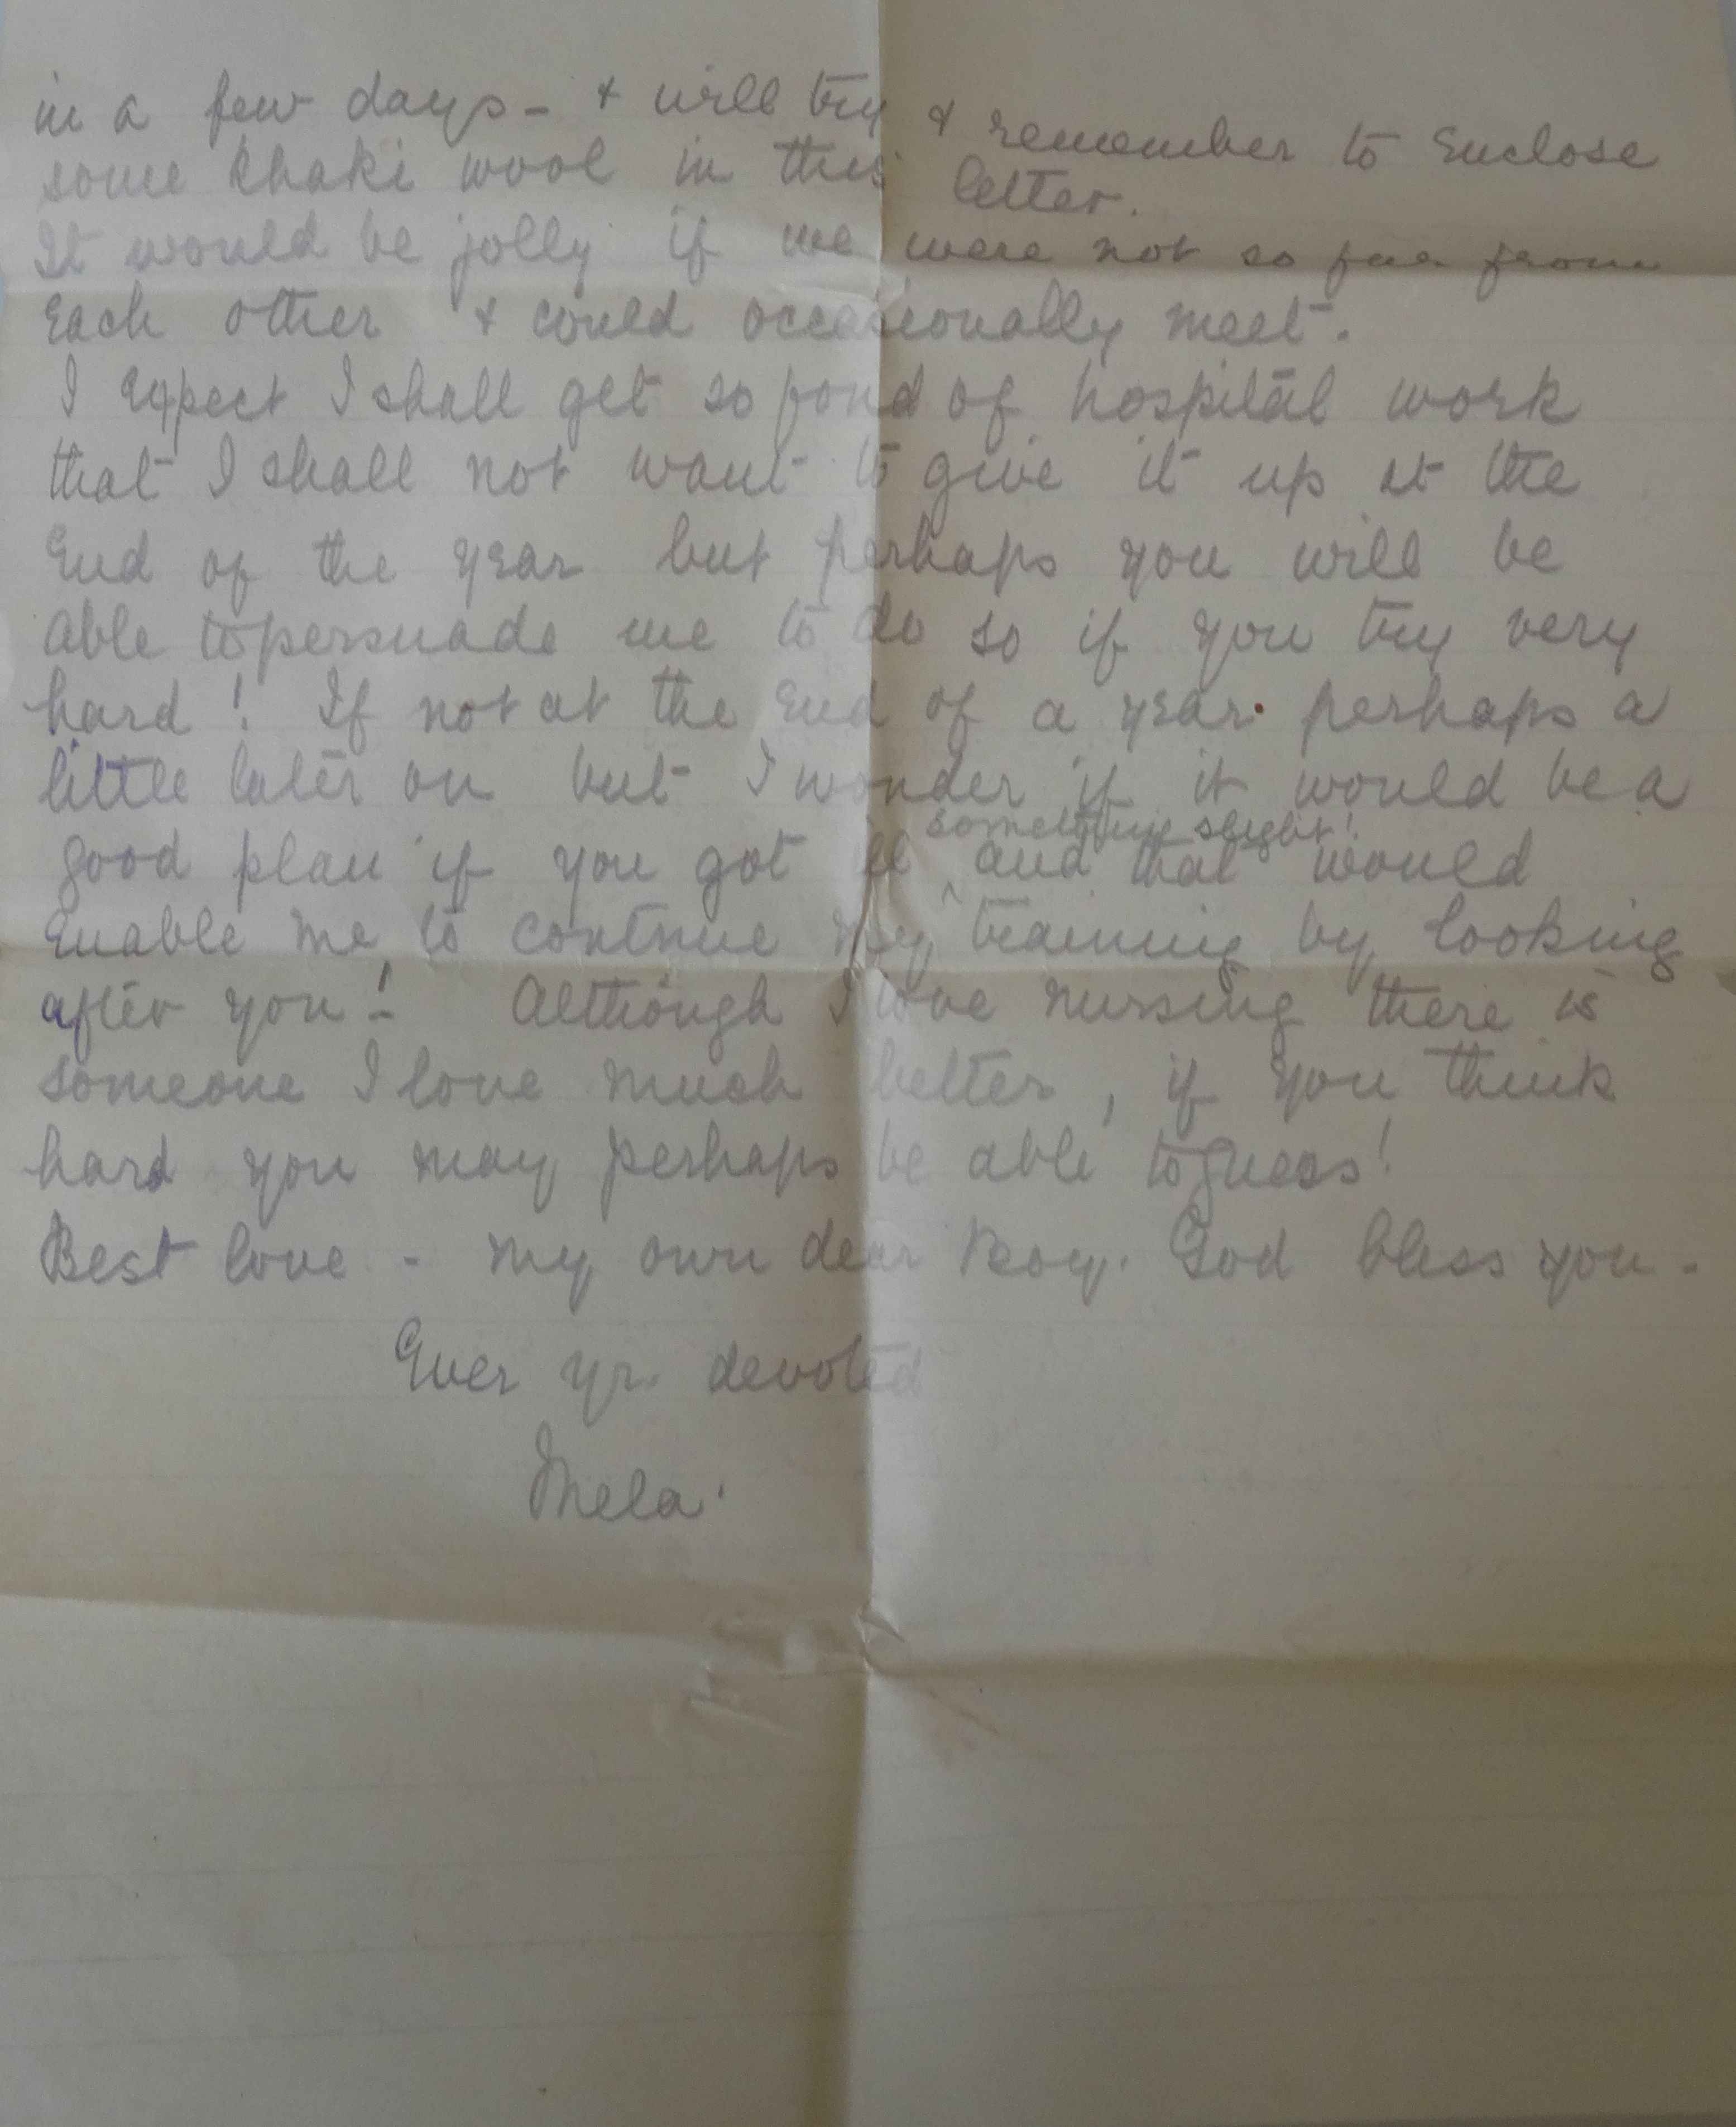 in a few days - & will try & remember to enclose
some khaki wool in this letter.
It would be jolly if we were not so far from
each other & could occasionally meet.
I expect I shall get so fond of hospital work
that I shall not want to give it up at the
end of the year but perhaps you will be
able to persuade me to do so if you try very
hard! If not at the end of a year perhaps a
little later on but I wonder if it would be a
something slight!
good plan if you got ill ^ and that would
enable me to contnue my training by looking
after you! Although I love nursing there is
someone I love much better, if you think
hard you may perhaps be able to guess!
Best love - my own dear Boy. God bless you -
Ever yr. devoted
Mela.